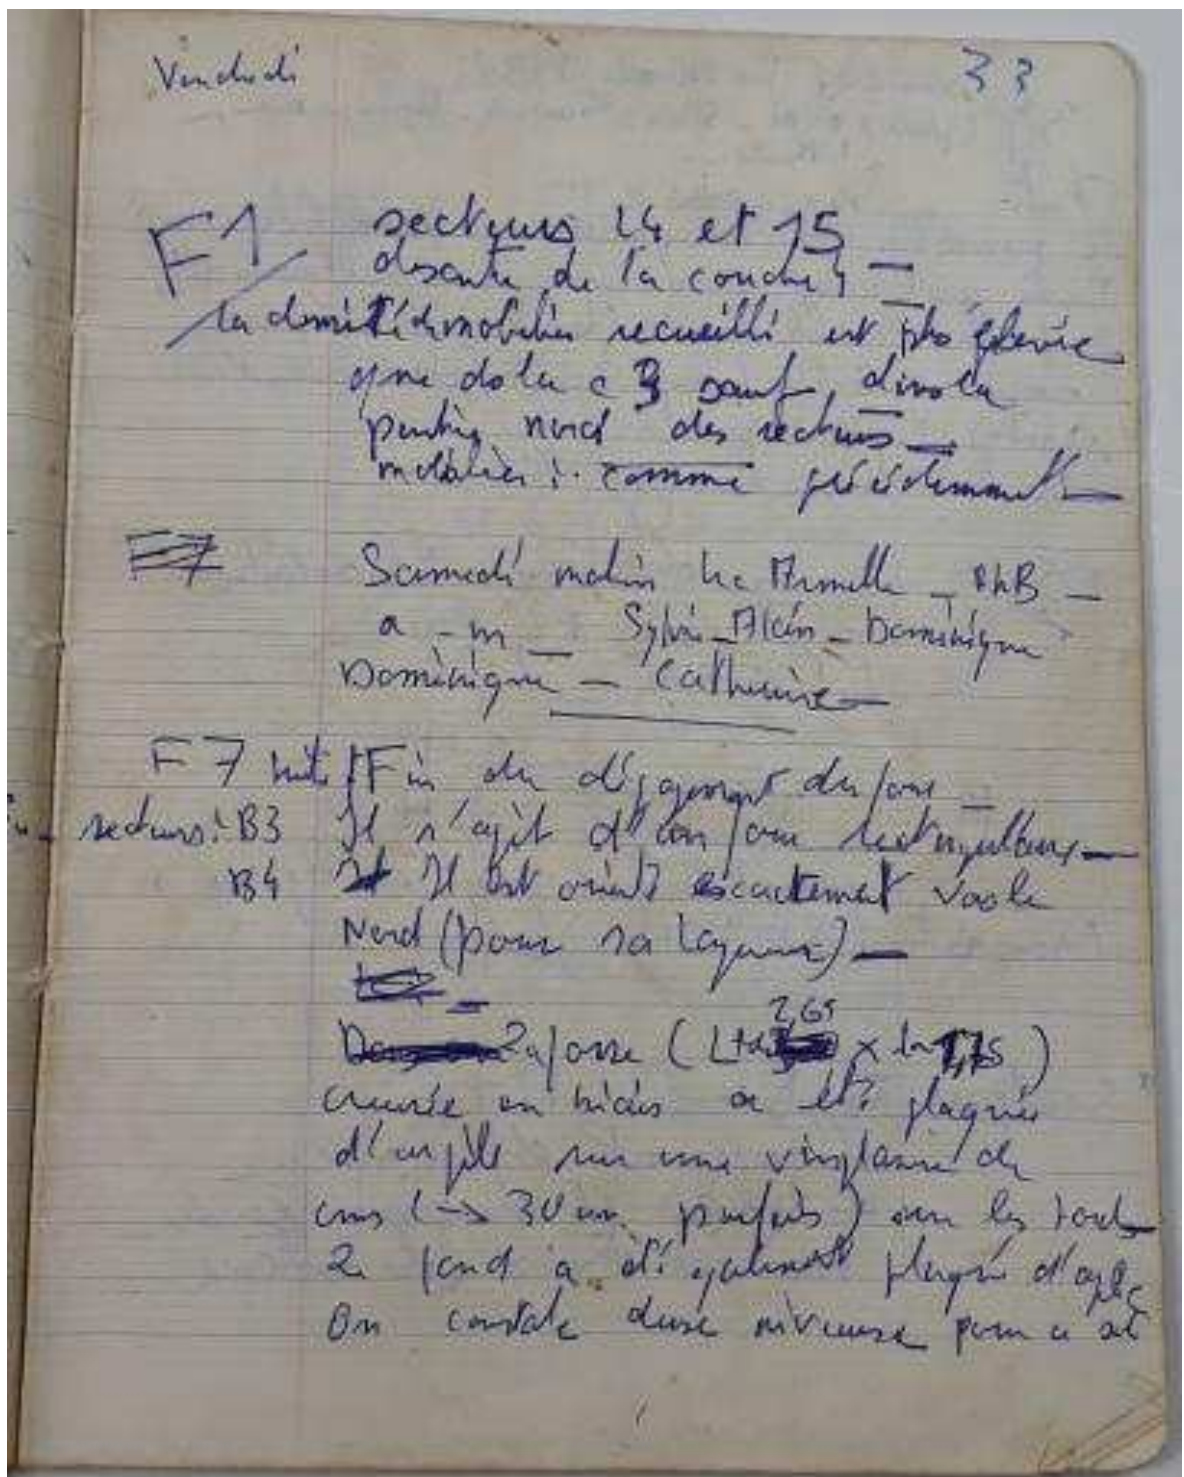 Vendredi 33
F1 secteurs 14 et 15
descente de la couche 4 —
la densité de mobilier recueilli est plus élevée
que ds la c 3 sauf, ds la
partie nord des secteurs —
mobilier : comme précédemment —
Samedi matin Armelle — PhB —
a - m — Sylvie — Alain — Dominique
Dominique — Catherine —
F7 Fin du dégagement du four —
secteurs : B3 Il s'agit d'un four rectangulaire —
B4 Il est orienté exactement vers le
Nord (pour sa largeur) —
La fosse ( 2,65 × 1,75 )
creusée en biais a été plaquée
d'argile sur une vingtaine de
cms (→ 30 cm parfois) sur les bords
Le fond a été également plaqué d'argile
On constate deux niveaux pour ce sol